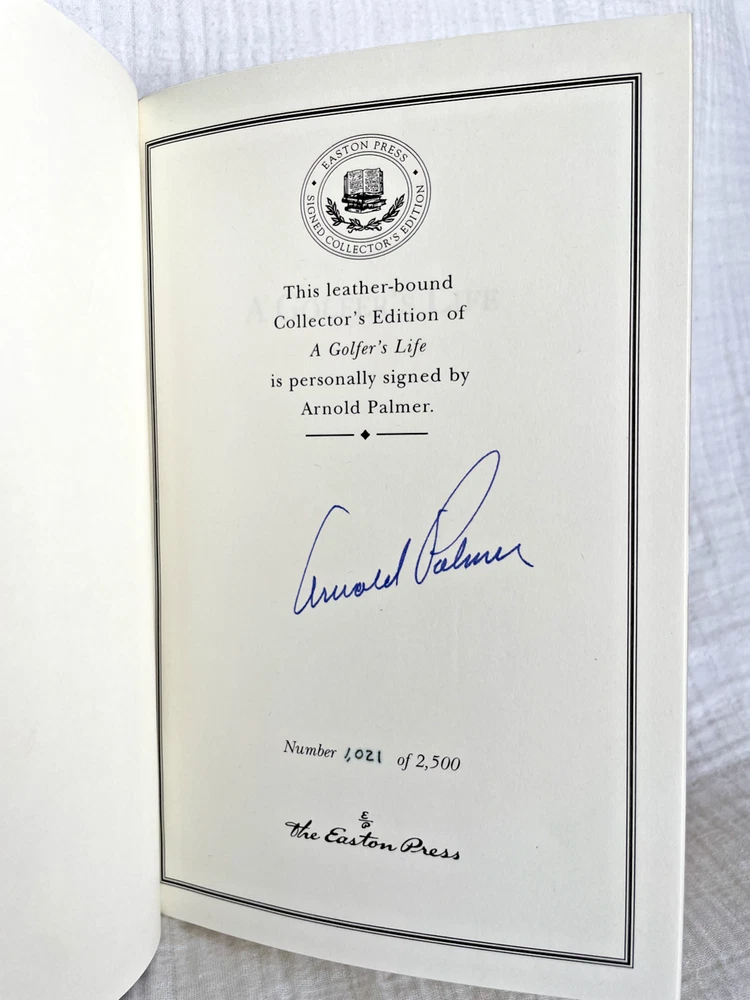 EASTON PRESS
SIGNED COLLECTOR'S EDITION
This leather-bound
Collector's Edition of
A Golfer's Life
is personally signed by
Arnold Palmer.
Arnold Palmer
Number 1,021 of 2,500
E/P
The Easton Press
A GOLFER'S LIFE